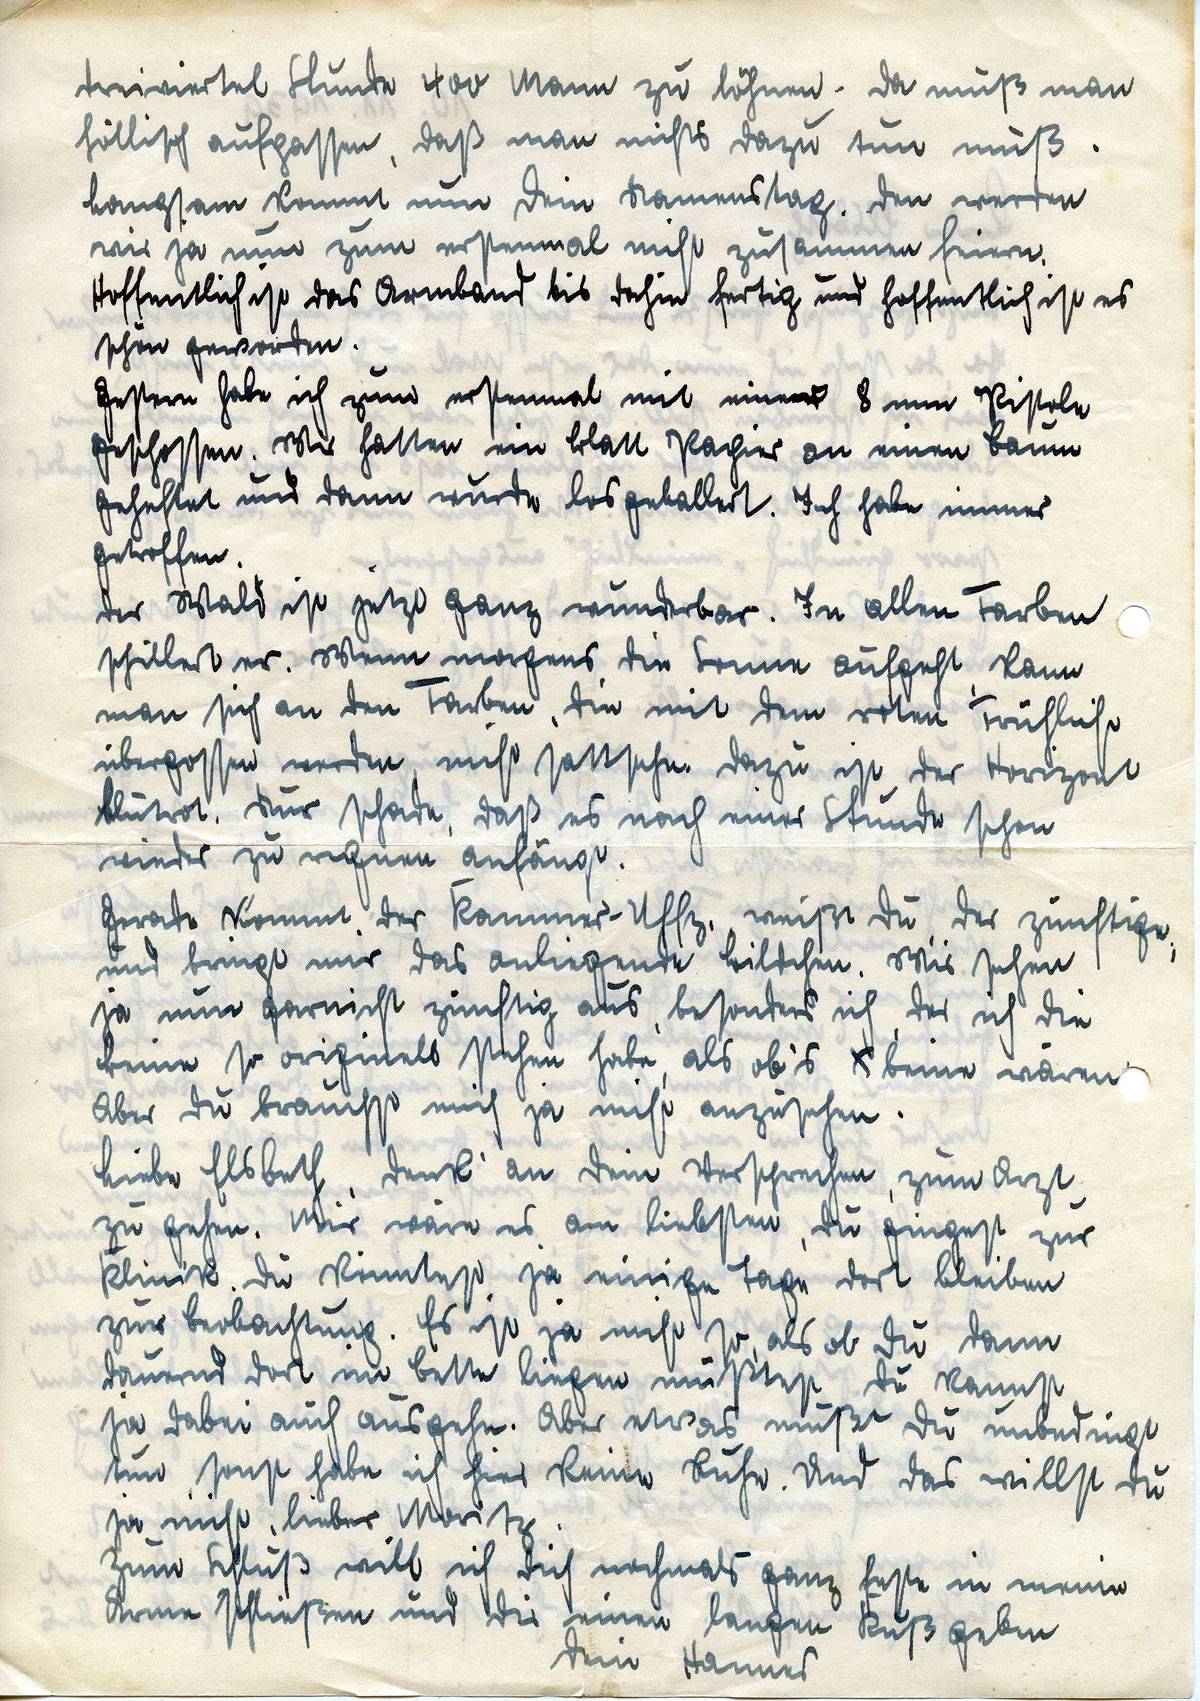 dreiviertel Stunde 400 Mann zu löhnen - da muß man
höllisch aufpassen, daß man nichts dazu tun muß.
Langsam kommt nun Dein Namenstag. Den werden
wir ja nun zum erstenmal nicht zusammen feiern.
Hoffentlich ist das Armband bis dahin fertig und hoffentlich ist es
schön geworden.
Gestern habe ich zum erstenmal mit einer 8 mm Pistole
geschossen. Wir hatten ein Blatt Papier an einen Baum
geheftet und dann wurde losgeballert. Ich habe immer
getroffen.
Der Wald ist jetzt ganz wunderbar. In allen Farben
schillert er. Wenn morgens die Sonne aufgeht, kann
man sich an den Farben, die mit dem roten Frühlicht
übergossen werden, nicht sattsehn. Dazu ist der Horizont
blutrot. Nur schade, daß es nach einer Stunde schon
wieder zu regnen anfängt.
Gerade kommt der Kammer-Uffz., weißt Du, der zünftige,
und bringt mir das anliegende Bildchen. Wir sehen
ja nun garnicht zünftig aus, besonders ich, der ich die
Beine so originell stehen habe, als ob's X beine wären
Aber Du brauchst mich ja nicht anzusehen.
Liebe Elsbeth, denk' an Dein Versprechen, zum Arzt
zu gehen. Mir wäre es am liebsten, Du gingest zur
Klinik. Du könntest ja einige Tage dort bleiben
zur Beobachtung. Es ist ja nicht so, als ob Du dann
dauernd dort im Bette liegen müßtest, Du kannst
ja dabei auch ausgehn. Aber etwas mußt Du unbedingt
tun, sonst habe ich hier keine Ruhe. Und das willst Du
ja nicht, lieber Moritz.
Zum Schluß will ich Dich nochmals ganz feste in meine
Arme schließen und Dir einen langen Kuß geben
Dein Hannes